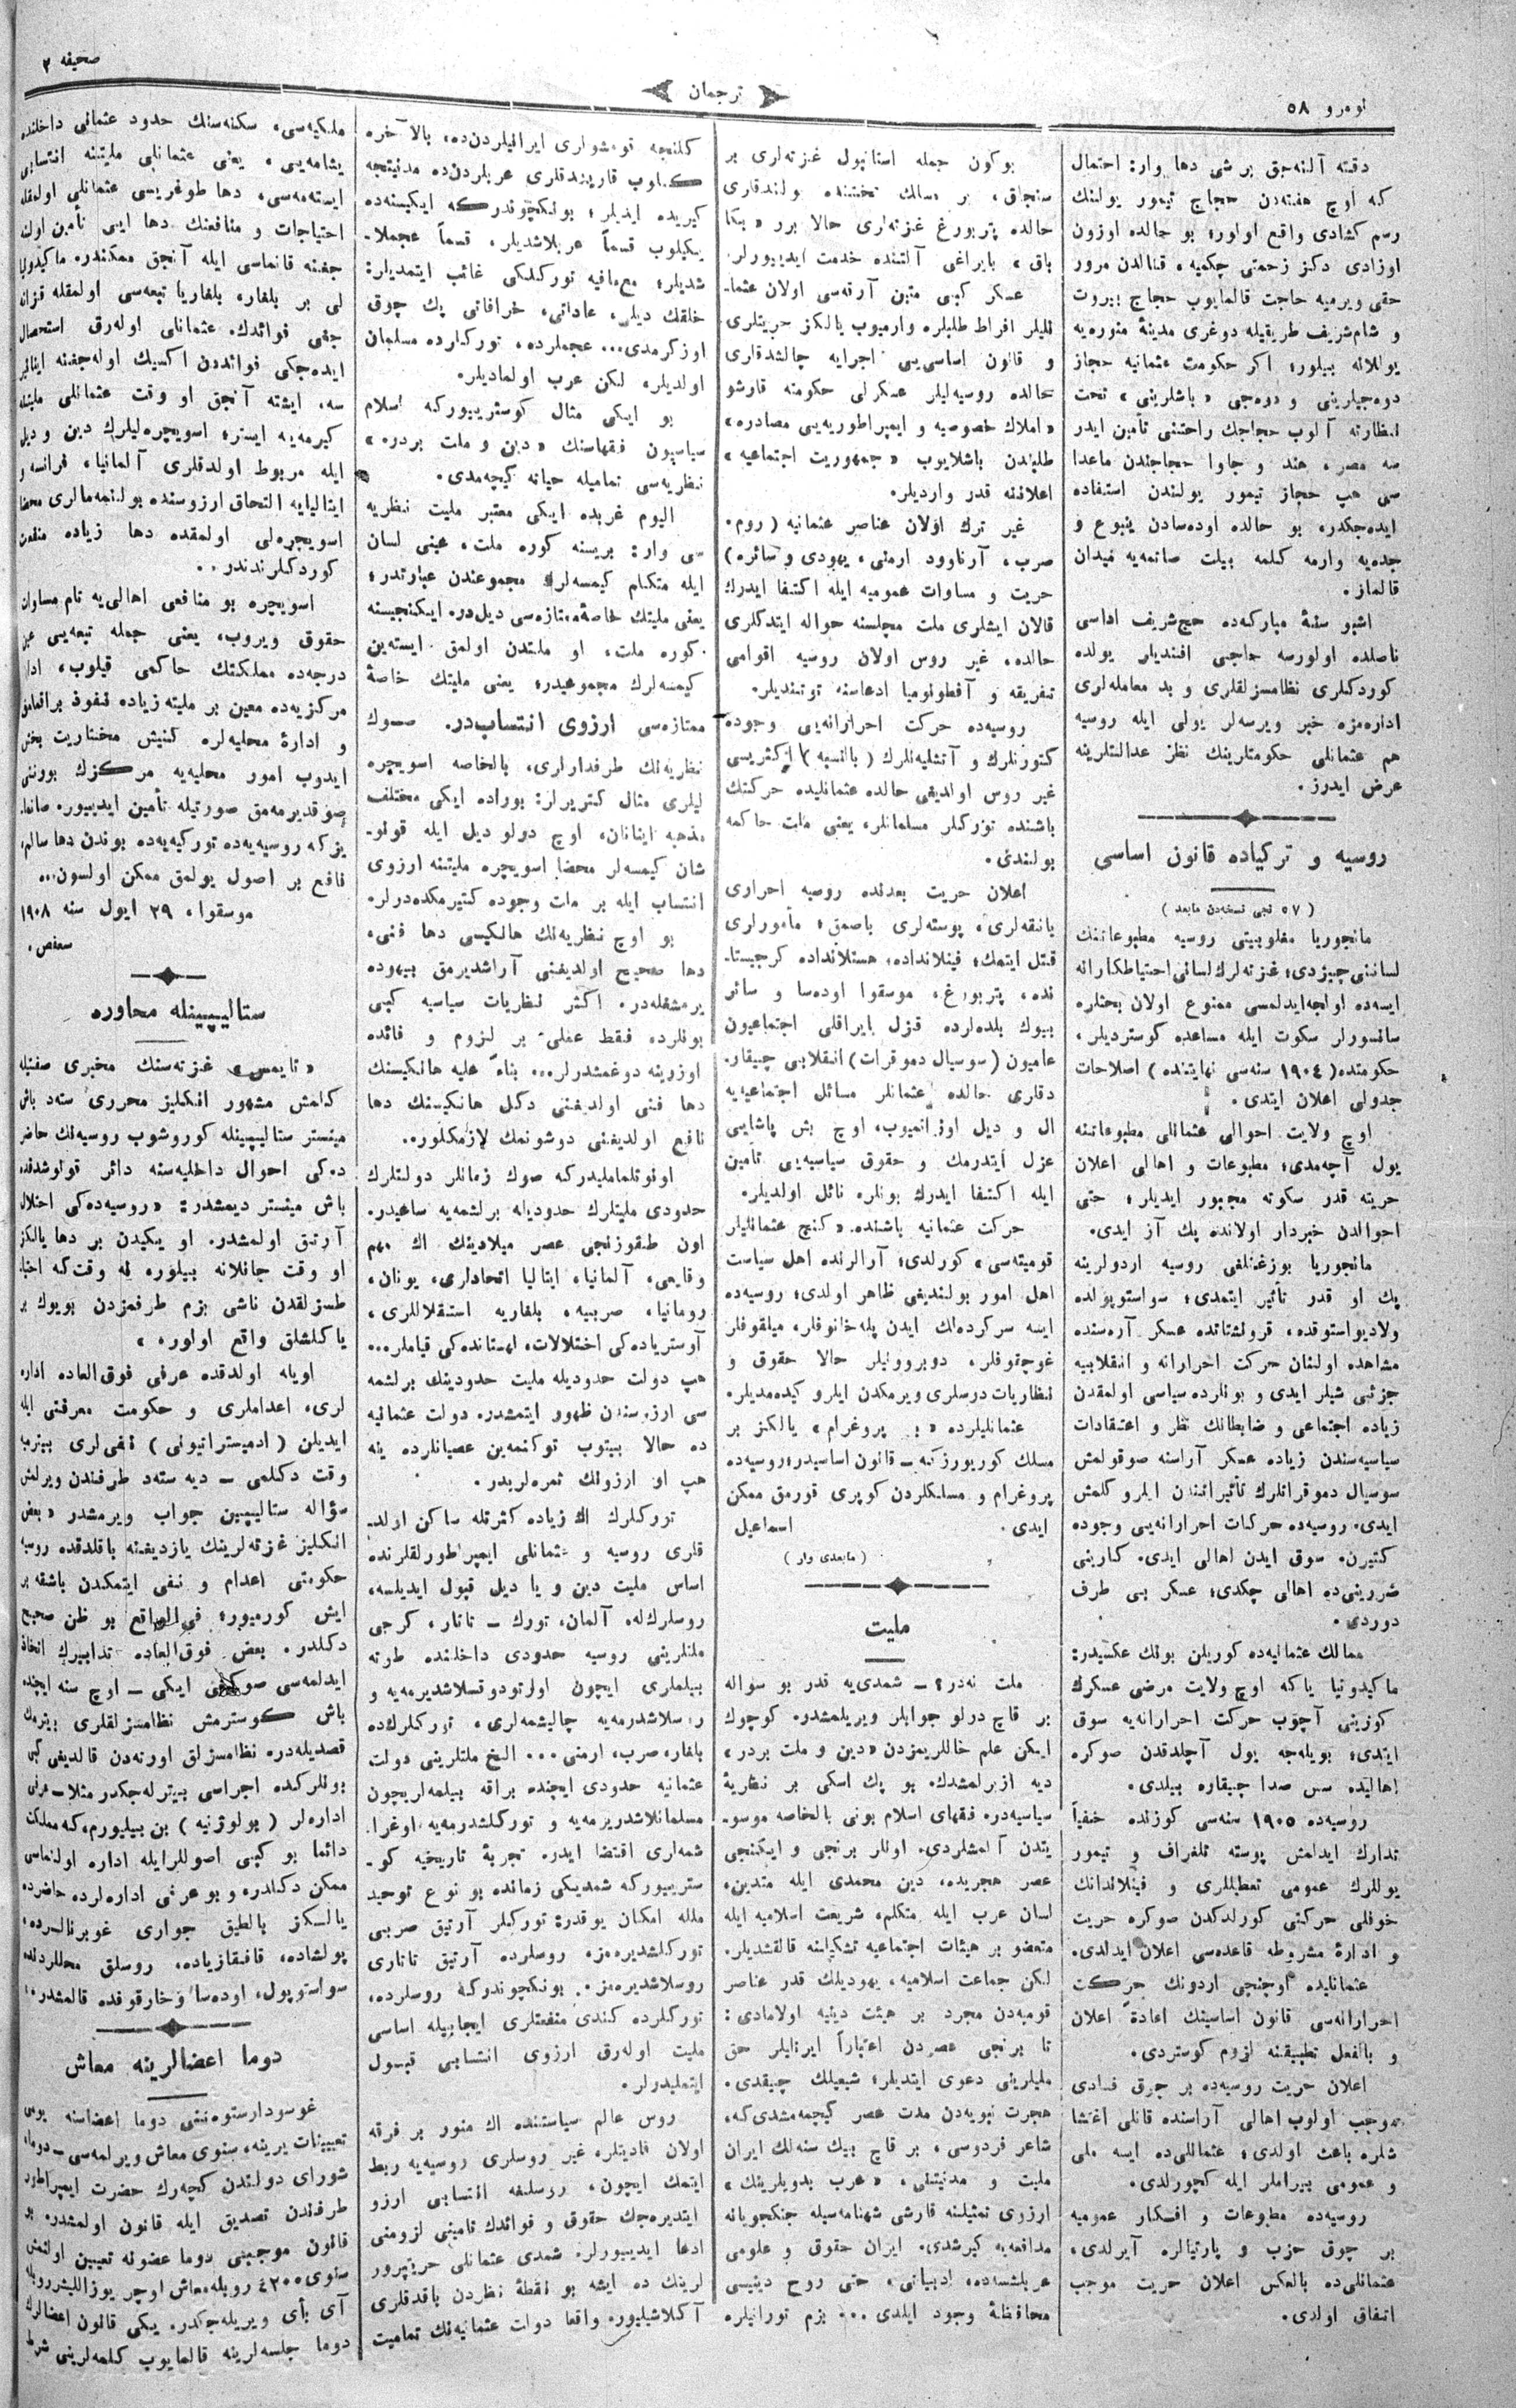 نومرو ٥٨
ترجمان
صحیفه ٢
دقته آلنه‌جق بر شی دها وار: احتمال
که اوچ هفته‌دن حجاج تیمور یولنك
رسم کشادی واقع اولور؛ بو حالده اوزون
اوزادی دکز زحمتی چکمیه، قنالدن مرور
حقی ویرمیه حاجت قالمایوب حجاج بیروت
و شام‌شریف طریقیله دوغری مدینهٔ منوره‌یه
یوللانه بیلور؛ اکر حکومت عثمانیه حجاز
دوه‌جیلرینی و دوه‌جی «باشلرینی» تحت
نظارته آلوب حجاجك راحتنی تأمین ایدر
سه مصر، هند و جاوا حجاجندن ماعدا
سی هپ حجاز تیمور یولندن استفاده
ایده‌جکدر، بو حالده اوده‌سادن ینبوع و
جده‌یه وارمه کلمه بیلت صاتمه‌یه میدان
قالماز.
اشبو سنهٔ مبارکه‌ده حج‌شریف اداسی
ناصلده اولورسه حاجی افندیلر یولده
کوردکلری نظامسزلقلری و بد معامله‌لری
اداره‌مزه خبر ویرسه‌لر یولی ایله روسیه
هم عثمانلی حکومتلرینك نظر عدالتلرینه
عرض ایدرز.
روسیه و ترکیاده قانون اساسی
(٥٧ نجی نسخه‌دن مابعد)
مانجوریا مغلوبیتی روسیه مطبوعاتنك
لساننی چیزدی؛ غزته‌لرك لسانی احتیاطکارانه
ایسه‌ده اولجه‌ایدلمسی ممنوع اولان بحثلره
سانسورلر سکوت ایله مساعده کوستردیلر،
حکومتده (١٩٠٤ سنه‌سی نهایتنده) اصلاحات
جدولی اعلان ایتدی.
اوچ ولایت احوالی عثمانلی مطبوعاتنه
یول آچه‌مدی؛ مطبوعات و اهالی اعلان
حریته قدر سکوته مجبور ایدیلر؛ حتی
احوالدن خبردار اولانده پك آز ایدی.
مانجوریا بوزغنلغی روسیه اردولرینه
پك او قدر تأثیر ایتمدی؛ سواستوپولده
ولادیواستوقده، قرونشتادده عسکر آره‌سنده
مشاهده اولنان حرکت احرارانه و انقلابیه
جزئی شیلر ایدی و بونلرده سیاسی اولمقدن
زیاده اجتماعی و ضابطانك نظر و اعتقادات
سیاسیه‌سندن زیاده عسکر آراسنه صوقولمش
سوسیال دموقراتلرك تأثیراتندن ایلرو کلمش
ایدی. روسیه‌ده حرکات احرارانه‌یی وجوده
کتیرن، سوق ایدن اهالی ایدی. کارینی
ضررینی‌ده اهالی چکدی؛ عسکر بی طرف
دوردی.
ممالك عثمانیه‌ده کوریلن بونك عکسیدر:
ماکیدونیا یاکه اوچ ولایت مرضی عسکرك
کوزینی آچوب حرکت احرارانه‌یه سوق
ایتدی؛ بویله‌جه یول آچلدقدن صوکره
اهالیده سس صدا چیقاره بیلدی.
روسیه‌ده ١٩٠٥ سنه‌سی کوزنده خفیاً
تدارك ایدلمش پوسته تلغراف و تیمور
یوللرك عمومی تعطیللری و فینلاندانك
خوفلی حرکتی کورلدکدن صوکره حریت
و ادارهٔ مشروطه قاعده‌سی اعلان ایدلدی.
عثمانلیده اوچنجی اردونك حرکت
احرارانه‌سی قانون اساسینك اعادهٔ اعلان
و بالفعل تطبیقنه لزوم کوستردی.
اعلان حریت روسیه‌ده بر چوق فسادی
موجب اولوب اهالی آراسنده قانلی اغتشا
شلره باعث اولدی؛ عثمانلی‌ده ایسه ملی
و عمومی بیراملر ایله کچورلدی.
روسیه‌ده مطبوعات و افکار عمومیه
بر چوق حزب و پارتیالره آیرلدی،
عثمانلی‌ده بالعکس اعلان حریت موجب
اتفاق اولدی.
بوکون جمله استانبول غزته‌لری بر
سنجاق، بر مسلك تحتنده بولندقلری
حالده پتربورغ غزته‌لری حالا برر «یکا
باق» بایراغی آلتنده خدمت ایدییورلر.
عسکر کبی متین آرقه‌سی اولان عثما‌ـ
نلیلر افراط طلبلره وارمیوب یالکز حریتلری
و قانون اساسی‌یی اجرایه چالشدقلری
حالده روسیه‌لیلر عسکرلی حکومته قارشو
«املاك خصوصیه و ایمپراطوریه‌یی مصادره»
طلبندن باشلایوب «جمهوریت اجتماعیه»
اعلاننه قدر واردیلر.
غیر ترك اولان عناصر عثمانیه (روم،
صرب، آرناوود ارمنی، یهودی و سائره)
حریت و مساوات عمومیه ایله اکتفا ایدرك
قالان ایشلری ملت مجلسنه حواله ایتدکلری
حالده، غیر روس اولان روسیه اقوامی
تفریقه و آفطونومیا ادعاسنه توتندیلر.
روسیه‌ده حرکت احرارانه‌یی وجوده
کتورنلرك و آتشلیه‌نلرك (بالنسبه) اکثریسی
غیر روس اولدیغی حالده عثمانلیده حرکتك
باشنده تورکلر مسلمانلر، یعنی ملت حاکمه
بولندی.
اعلان حریت بعدنده روسیه احراری
بانقه‌لری، پوسته‌لری باصمق؛ مأمورلری
قتل ایتمك؛ فینلانداده، هستلانداده کرجیستا‌ـ
نده، پتربورغ، موسقوا اوده‌سا و سائر
بیوك بلده‌لرده قزل بایراقلی اجتماعیون
عامیون (سوسیال دموقرات) انقلابی چیقار‌ـ
دقلری حالده عثمانلر مسائل اجتماعیه‌یه
ال و دیل اوزانمیوب، اوچ بش پاشایی
عزل ایتدرمك و حقوق سیاسیه‌یی تأمین
ایله اکتفا ایدرك بونلره نائل اولدیلر.
حرکت عثمانیه باشنده «کنج عثمانلیلر
قومیته‌سی» کورلدی؛ آرالرنده اهل سیاست
اهل امور بولندیغی ظاهر اولدی؛ روسیه‌ده
ایسه سرکرده‌لك ایدن پله‌خانوفلر، میلقوفلر
غوچقوفلر، دوبروولیلر حالا حقوق و
نظاریات درسلری ویرمکدن ایلرو کیده‌مدیلر.
عثمانلیلرده «بر پروغرام» یالکز بر
مسلك کوریورزکه ـ قانون اساسیدر؛ روسیه‌ده
پروغرام و مسلکلردن کوپری قورمق ممکن
ایدی. اسماعیل
(مابعدی وار)
ملیت
ملت نه‌در؟ ـ شمدی‌یه قدر بو سؤاله
بر قاچ درلو جوابلر ویریلمشدر. کوچوك
ایکن علم حاللریمزدن «دین و ملت بردر»
دیه ازبرلمشدك. بو پك اسکی بر نظریهٔ
سیاسیه‌در. فقهای اسلام بونی بالخاصه موسو‌ـ
یتدن آلمشلردی. اونلر برنجی و ایکنجی
عصر هجریده، دین محمدی ایله متدین،
لسان عرب ایله متکلم، شریعت اسلامیه ایله
متعضو بر هیئات اجتماعیه تشکیلنه قالقشدیلر.
لکن جماعت اسلامیه، یهودیلك قدر عناصر
قومیه‌دن مجرد بر هیئت دینیه اولامادی:
تا برنجی عصردن اعتباراً ایرانلیلر حق
ملیلرینی دعوی ایتدیلر؛ شیعیلك چیقدی.
هجرت نبویه‌دن مدت عصر کیچمه‌مشدی‌که،
شاعر فردوسی، بر قاچ بیك سنه‌لك ایران
ملیت و مدنیتنی، «عرب بدویلرینك»
ارزوی تمثیلنه قارشی شهنامه‌سیله جنکجویانه
مدافعه‌یه کیرشدی. ایران حقوق و علومی
عربلشسه‌ده، ادبیاتی، حتی روح دینیسی
محافظهٔ وجود ایلدی... بزم تورانیلره
کلنجه قومشولری ایرانیلردن‌ده، بالآخره
کلوب قاریشدقلری عربلردن‌ده مدنیتجه
کیریده ایدیلر؛ بونکچوندرکه ایکیسنه‌ده
ییکیلوب قسماً عربلاشدیلر، قسماً عجملا‌ـ
شدیلر؛ مع‌مافیه تورکلکی غائب ایتمدیلر:
خلقك دیلی، عاداتی، خرافاتی پك چوق
اوزکرمدی... عجملرده، تورکلرده مسلمان
اولدیلر، لکن عرب اولمادیلر.
بو ایکی مثال کوستریبورکه اسلام
سیاسیون فقهاسنك «دین و ملت بردر»
نظریه‌سی تمامیله حیاته کیچه‌مدی.
الیوم غربده ایکی معتبر ملیت نظریه
سی وار: بریسنه کوره ملت، عینی لسان
ایله متکلم کیمسه‌لرك مجموعندن عبارتدر؛
یعنی ملیتك خاصهٔ ممتازه‌سی دیل‌در. ایکنجیسنه
کوره ملت، او ملتدن اولمق ایسته‌ین
کیمسه‌لرك مجموعیدر؛ یعنی ملیتك خاصهٔ
ممتازه‌سی ارزوی انتساب‌در. صوك
نظریه‌نك طرفدارلری، بالخاصه اسویچره
لیلری مثال کتیریرلر: بوراده ایکی مختلف
مذهبه اینانان، اوچ درلو دیل ایله قونو‌ـ
شان کیمسه‌لر محضا اسویچره ملیتنه ارزوی
انتساب ایله بر ملت وجوده کتیرمکده‌درلر.
بو اوچ نظریه‌نك هانکیسی دها فنی،
دها صحیح اولدیغنی آراشدیرمق بیهوده
بر مشغله‌در. اکثر نظریات سیاسیه کبی
بونلرده فقط عملی بر لزوم و فائده
اوزرینه دوغمشدرلر... بناءً علیه هانکیسنك
دها فنی اولدیغنی دکل هانکیسنك دها
نافع اولدیغنی دوشونمك لازمکلور.
اونوتلمامالیدرکه صوك زمانلر دولتلرك
حدودی ملیتلرك حدودیله برلشمه‌یه ساعیدر.
اون طقوزنجی عصر میلادینك اك مهم
وقایعی، آلمانیا، ایتالیا اتحادلری، یونان،
رومانیا، صربیه، بلغاریه استقلاللری،
آوستریاده‌کی اختلالات، لهستانده‌کی قیاملر...
هپ دولت حدودیله ملیت حدودینك برلشمه
سی ارزوسندن ظهور ایتمشدر. دولت عثمانیه
ده حالا بیتوب توکنمه‌ین عصیانلرده ینه
هپ او ارزونك ثمره‌لریدر.
تورکلرك اك زیاده کثرتله ساکن اولد‌ـ
قلری روسیه و عثمانلی ایمپراطورلقلرنده
اساس ملیت دین و یا دیل قبول ایدیلسه،
روسلرك‌له، آلمان، تورك ـ تاتار، کرجی
ملتلرینی روسیه حدودی داخلنده طوته
بیلملری ایچون اورتودوقسلاشدیرمه‌یه و
روسلاشدرمه‌یه چالیشمه‌لری، تورکلرك‌ده
بلغار، صرب، ارمنی... الخ ملتلرینی دولت
عثمانیه حدودی ایچنده براقه بیلمه‌لریچون
مسلمانلاشدیرمه‌یه و تورکلشدرمه‌یه اوغرا‌ـ
شمه‌لری اقتضا ایدر. تجربهٔ تاریخیه کو‌ـ
ستریبورکه شمدیکی زمانده بو نوع توحید
ملله امکان یوقدر: تورکلر آرتیق صربی
تورکلشدیره‌مز، روسلرده آرتیق تاتاری
روسلاشدیره‌مز. بونکچوندرکه روسلرده،
تورکلرده کندی منفعتلری ایجابیله اساسی
ملیت اوله‌رق ارزوی انتسابی قبول
ایتملیدرلر.
روس عالم سیاستنده اك منور بر فرقه
اولان قادیتلر، غیر روسلری روسیه‌یه ربط
ایتمك ایچون، روسلغه انتسابی ارزو
ایتدیره‌جك حقوق و فوائدك تأمینی لزومنی
ادعا ایدییورلر. شمدی عثمانلی حریتپرور
لرینك ده ایشه بو نقطهٔ نظردن باقدقلری
آکلاشیلیور. واقعا دولت عثمانیه‌نك تمامیت
ملکیه‌سی، سکنه‌سنك حدود عثمانی داخلنده
یشامه‌یی، یعنی عثمانلی ملیتنه انتسابی
ایسته‌مه‌سی، دها طوغریسی عثمانلی اولمقله
احتیاجات و منافعنك دها ایی تأمین اولنه
جغنه قانماسی ایله آنجق ممکندر. ماکیدونیا
لی بر بلغار، بلغاریا تبعه‌سی اولمقله قزانه
جغی فوائدك، عثمانلی اوله‌رق استحصال
ایده‌جکی فوائددن اکسیك اوله‌جغنه اینانیر
سه، ایشته آنجق او وقت عثمانلی ملیتنه
کیرمه‌یه ایستر؛ اسویچره‌لیلرك دین و دیل
ایله مربوط اولدقلری آلمانیا، فرانسه و
ایتالیایه التحاق ارزوسنده بولنمه‌مالری محضا
اسویچره‌لی اولمقده دها زیاده منفعت
کوردکلرندندر..
اسویچره بو منافعی اهالی‌یه تام مساوات
حقوق ویروب، یعنی جمله تبعه‌یی عین
درجه‌ده مملکتك حاکمی قیلوب، ادارهٔ
مرکزیه‌ده معین بر ملیته زیاده نفوذ براقمامق
و ادارهٔ محلیه‌لره کنیش مختاریت بخش
ایدوب امور محلیه‌یه مرکزك بورنی
صوقدیرمه‌مق صورتیله تأمین ایدییور. صانما‌ـ
یزکه روسیه‌ده تورکیه‌ده بوندن دها سالم،
نافع بر اصول بولمق ممکن اولسون...
موسقوا، ٢٩ ایول سنه ١٩٠٨
سعفص.
ستالیپینله محاوره
«تایمس» غزته‌سنك مخبری صفتیله
کلمش مشهور انکلیز محرری ستد باش
مینستر ستالیپینله کوروشوب روسیه‌نك حاضر
ده‌کی احوال داخلیه‌سنه دائر قونوشدقده
باش مینستر دیمشدر: «روسیه‌ده‌کی اختلال
آرتق اولمشدر. او ییکیدن بر دها یالکز
او وقت جانلانه بیلور، نه وقت‌که احتیا
طسزلقدن ناشی بزم طرفمزدن بویوك بر
یاکلشلق واقع اولور.»
اویله اولدقده عرفی فوق‌العاده اداره
لری، اعداملری و حکومت معرفتی ایله
ایدیلن (ادمیستراتیونی) نفی‌لری بیترمه
وقت دکلمی ـ دیه ستد طرفندن ویرلمش
سؤاله ستالیپین جواب ویرمشدر «بعض
انکلیز غزته‌لرینك یازدیغنه باقلدقده روسیه
حکومتی اعدام و نفی ایتمکدن باشقه بر
ایش کورمیور؛ فی‌الواقع بو ظن صحیح
دکلدر. بعض فوق‌العاده تدابیرك اتخاذ
ایدلمه‌سی صوکغی ایکی ـ اوچ سنه ایچنده
باش کوسترمش نظامسزلقلری بیترمك
قصدیله‌در. نظامسزلق اورته‌دن قالدیغی کبی
بونلرکده اجراسی بیترله‌جکدر مثلا ـ عرفی
اداره‌لر (پولوژنیه) بن بیلیورم، که مملکت
دائما بو کبی اصوللرایله اداره اولنماسی
ممکن دکلدر، و بو عرفی اداره‌لرده حاضرده
یالسکز بالطیق جواری غوبرنالرده،
پولشاده، قافقازیاده، روسلق محللردنده
سواستوپول، اوده‌سا و خارقوفده قالمشدر.»
دوما اعضالرینه معاش
غوسودارستوه‌ننی دوما اعضاسنه یومی
تعیینات یرینه، سنوی معاش ویرلمه‌سی ـ دوما،
شورای دولتدن کچه‌رك حضرت ایمپراطور
طرفندن تصدیق ایله قانون اولمشدر. بو
قانون موجبنجی دوما عضونه تعیین اولنمش
سنوی ٤٢٠٠ روبله معاش اوچر یوز اللیشر روبله
آی بأی ویریله‌جکدر. یکی قانون اعضالرك
دوما جلسه‌لرینه قالمایوب کلمه‌لرینی شرط